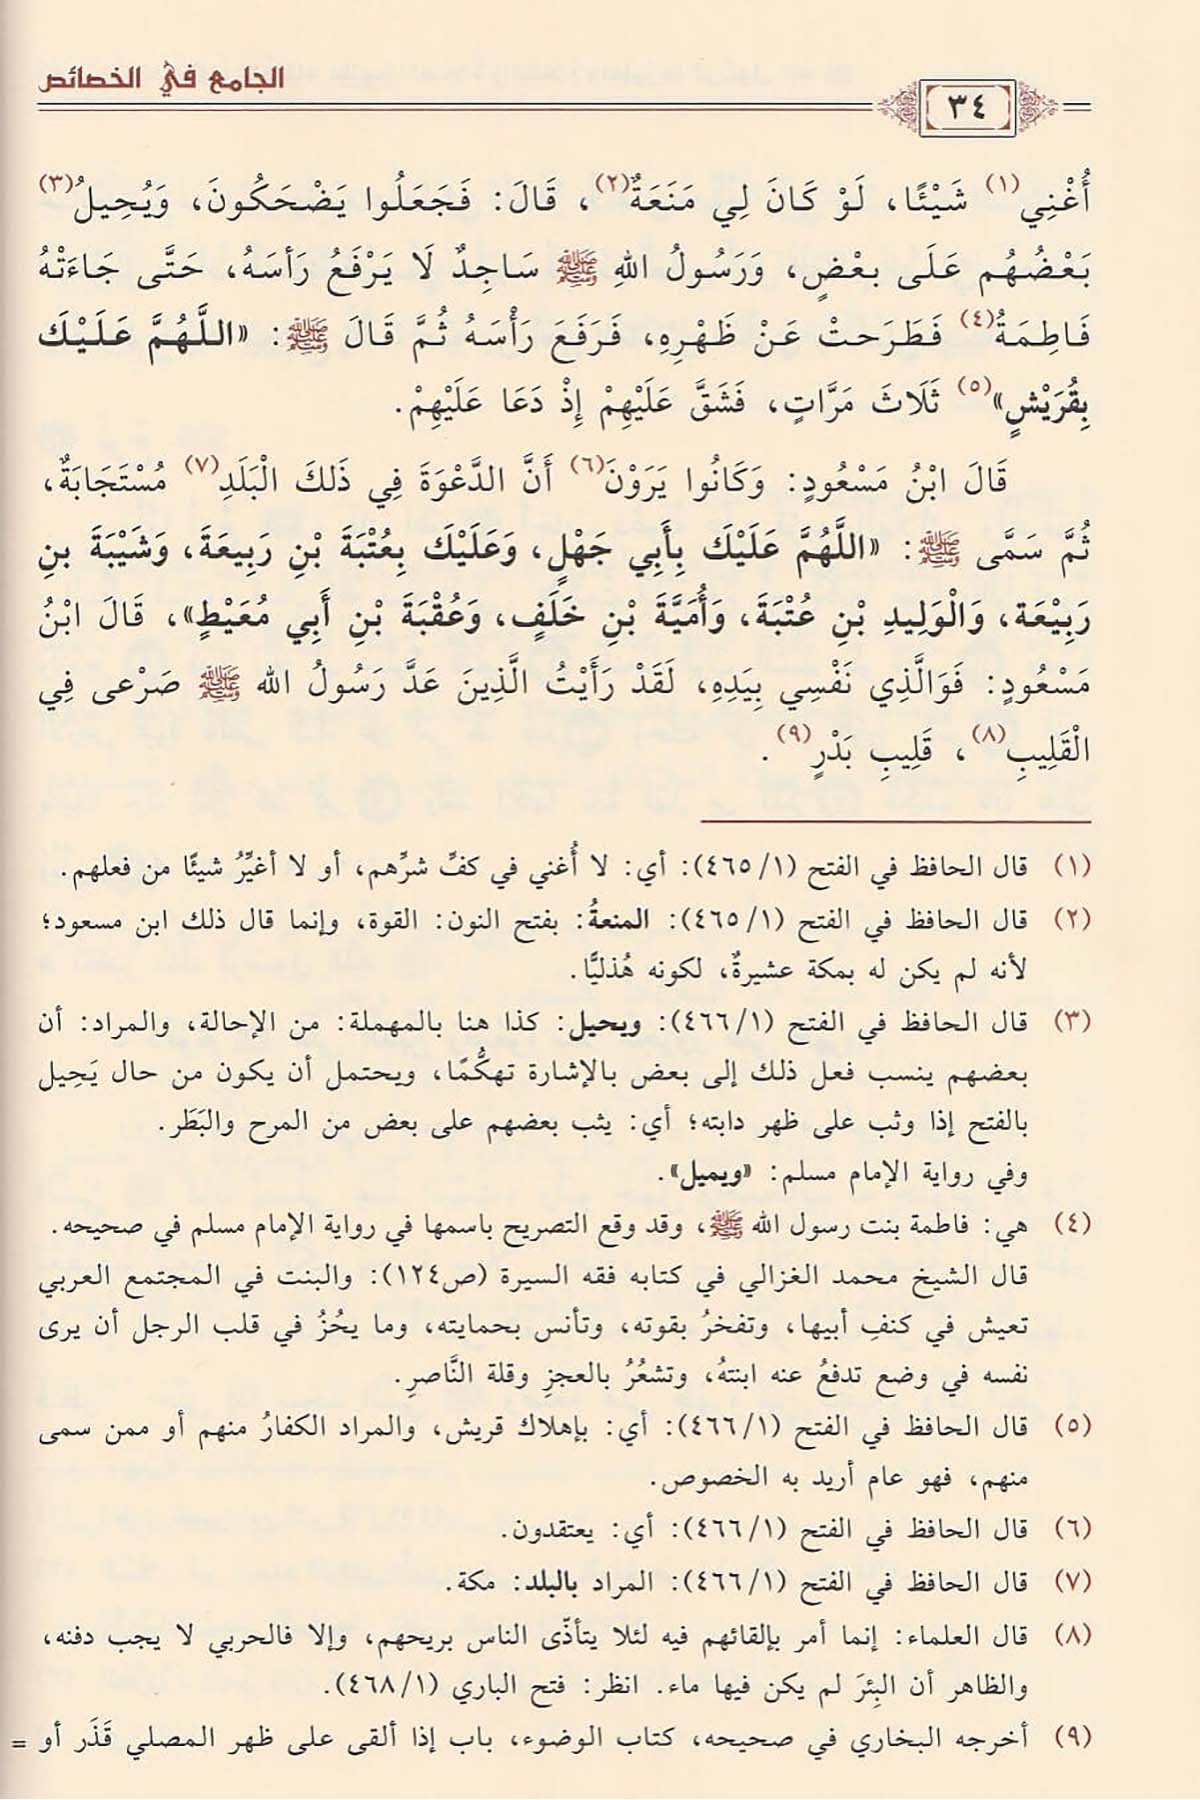 الجامع في الخصائص
٣٤
أُغْنِي(١) شَيْئًا، لَوْ كَانَ لِي مَنَعَةٌ(٢)، قَالَ: فَجَعَلُوا يَضْحَكُونَ، وَيُحِيلُ(٣)
بَعْضُهُم عَلَى بعْضٍ، وَرَسُولُ اللهِ ﷺ سَاجِدٌ لَا يَرْفَعُ رَأسَهُ، حَتَّى جَاءَتْهُ
فَاطِمَةُ(٤) فَطَرَحتْ عَنْ ظَهْرِهِ، فَرَفَعَ رَأْسَهُ ثُمَّ قَالَ ﷺ: «اللَّهُمَّ عَلَيْكَ
بِقُرَيْشٍ»(٥) ثَلَاثَ مَرَّاتٍ، فَشَقَّ عَلَيْهِمْ إِذْ دَعَا عَلَيْهِمْ.
قَالَ ابْنُ مَسْعُودٍ: وَكَانُوا يَرَوْنَ(٦) أَنَّ الدَّعْوَةَ فِي ذَلكَ الْبَلَدِ(٧) مُسْتَجَابَةٌ،
ثُمَّ سَمَّى ﷺ: «اللَّهُمَّ عَلَيْكَ بِأَبِي جَهْلٍ، وَعَلَيْكَ بِعُتْبَةَ بْنِ رَبِيعَةَ، وَشَيْبَةَ بنِ
رَبِيْعَة، وَالْوَلِيدِ بْنِ عُتْبَةَ، وَأُمَيَّةَ بْنِ خَلَفٍ، وَعُقْبَةَ بْنِ أَبِي مُعَيْطٍ»، قَالَ ابْنُ
مَسْعُودٍ: فَوَالَّذِي نَفْسِي بِيَدِهِ، لَقَدْ رَأَيْتُ الَّذِينَ عَدَّ رَسُولُ الله ﷺ صَرْعى فِي
الْقَلِيبِ(٨)، قَلِيبِ بَدْرٍ(٩).
(١) قال الحافظ في الفتح (١/ ٤٦٥): أي: لا أُغني في كفِّ شرِّهم، أو لا أغيِّرُ شيئًا من فعلهم.
(٢) قال الحافظ في الفتح (١/ ٤٦٥): المنعةُ: بفتح النون: القوة، وإنما قال ذلك ابن مسعود؛
لأنه لم يكن له بمكة عشيرةٌ، لكونه هُذليًّا.
(٣) قال الحافظ في الفتح (١/ ٤٦٦): ويحيل: كذا هنا بالمهملة: من الإحالة، والمراد: أن
بعضهم ينسب فعل ذلك إلى بعض بالإشارة تهكُّمًا، ويحتمل أن يكون من حال يَحِيل
بالفتح إذا وثب على ظهر دابته؛ أي: يثب بعضهم على بعض من المرح والبَطَر.
وفي رواية الإمام مسلم: «ويميل».
(٤) هي: فاطمة بنت رسول الله ﷺ، وقد وقع التصريح باسمها في رواية الإمام مسلم في صحيحه.
قال الشيخ محمد الغزالي في كتابه فقه السيرة (ص١٢٤): والبنت في المجتمع العربي
تعيش في كنفِ أبيها، وتفخرُ بقوته، وتأنس بحمايته، وما يحُزُ في قلب الرجل أن يرى
نفسه في وضع تدفعُ عنه ابنتهُ، وتشعُرُ بالعجزِ وقلة النَّاصرِ.
(٥) قال الحافظ في الفتح (١/ ٤٦٦): أي: بإهلاك قريش، والمراد الكفارُ منهم أو ممن سمى
منهم، فهو عام أريد به الخصوص.
(٦) قال الحافظ في الفتح (١/ ٤٦٦): أي: يعتقدون.
(٧) قال الحافظ في الفتح (١/ ٤٦٦): المراد بالبلد: مكة.
(٨) قال العلماء: إنما أمر بإلقائهم فيه لئلا يتأذّى الناس بريحهم، وإلا فالحربي لا يجب دفنه،
والظاهر أن البِئرَ لم يكن فيها ماء. انظر: فتح الباري (١/ ٤٦٨).
(٩) أخرجه البخاري في صحيحه، كتاب الوضوء، باب إذا ألقى على ظهر المصلي قَذَر أو =